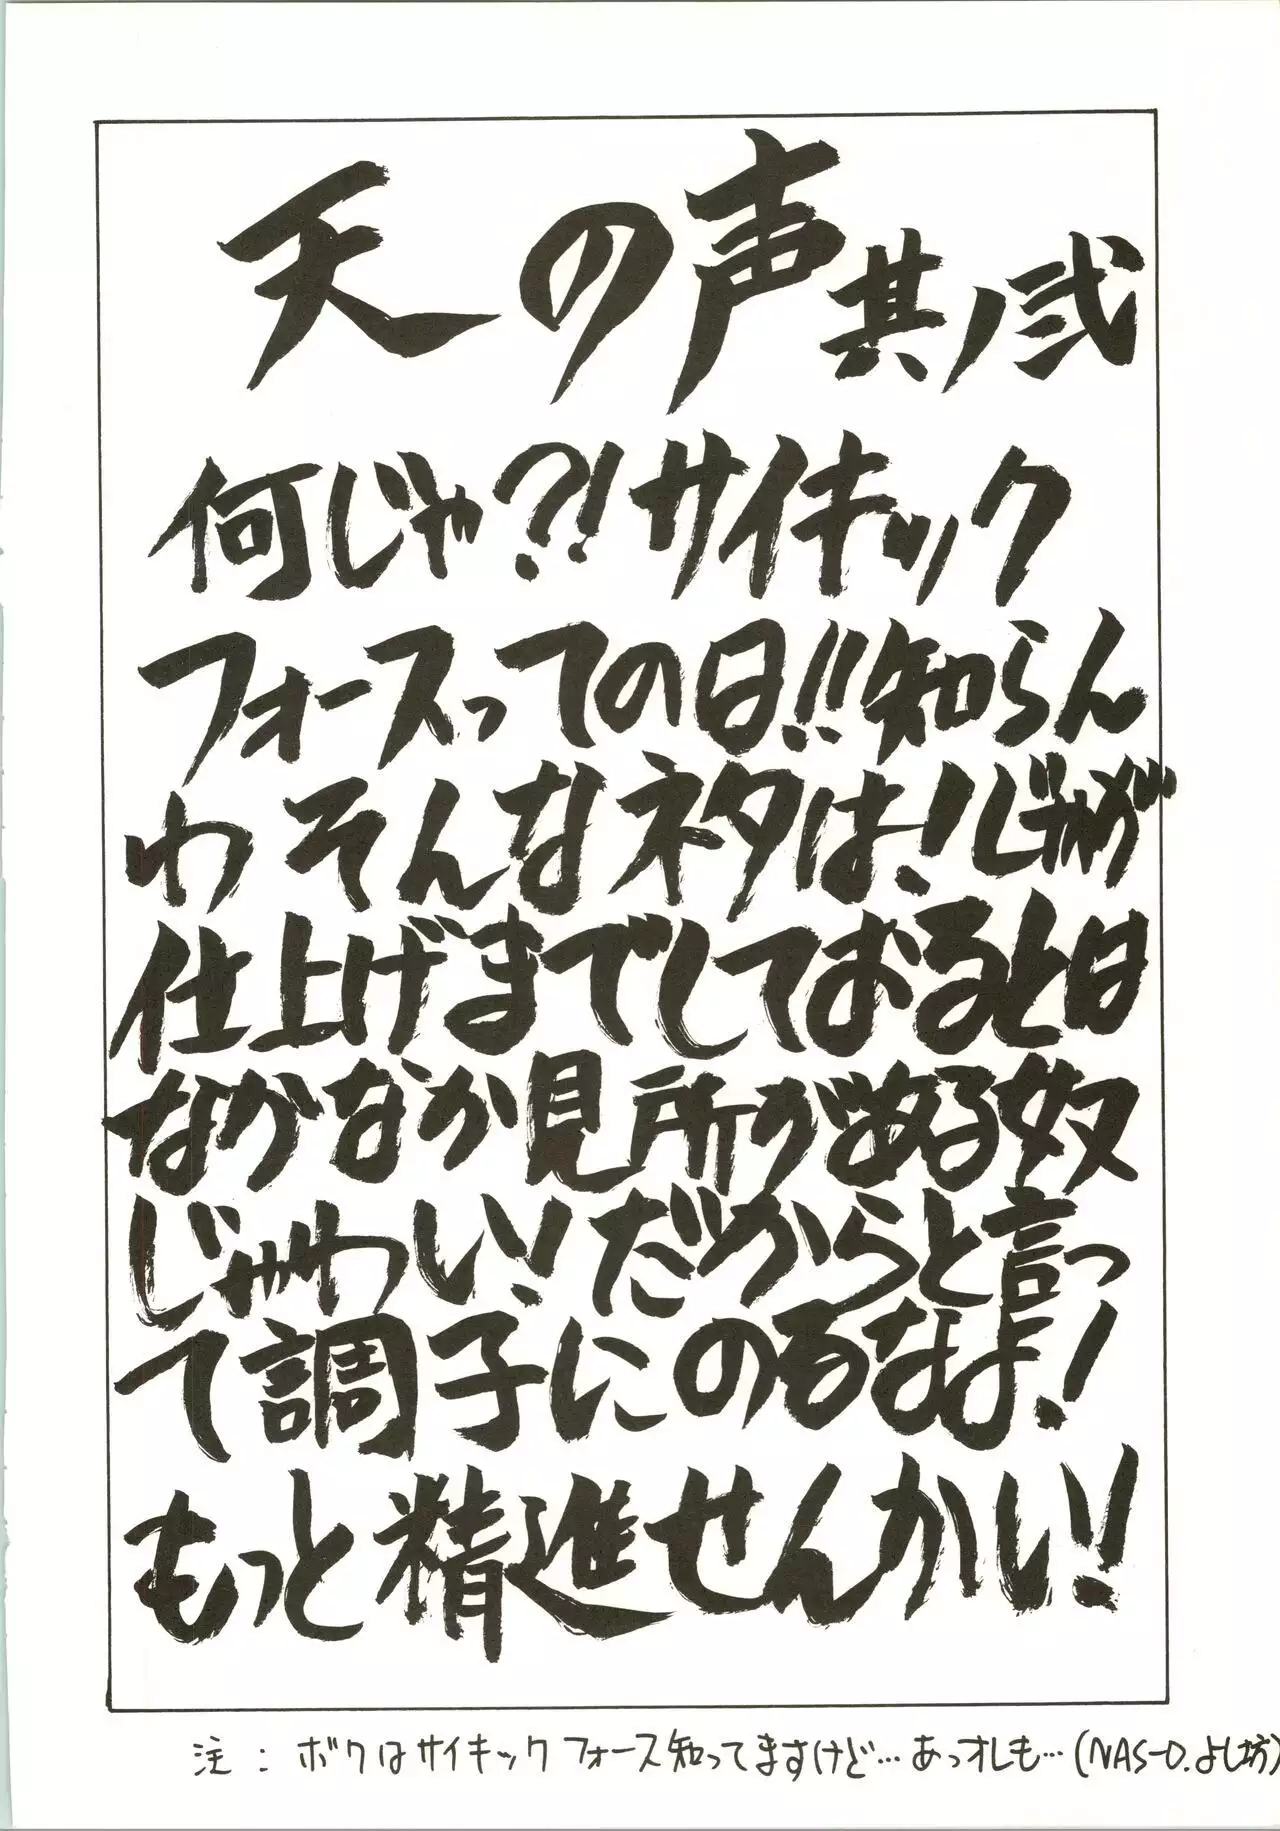 天の声 其ノ弐
何じゃ?!サイキック
フォースっての日!!知らん
わそんなネタは!じゃが…
仕上げまでしておるとは
なかなか見所がある奴
じゃわい!だからと言っ
て調子にのるなよ!
もっと精進せんかい!
注:ボクはサイキックフォース知ってますけど…あっオレも…(NAS-O.よし坊)